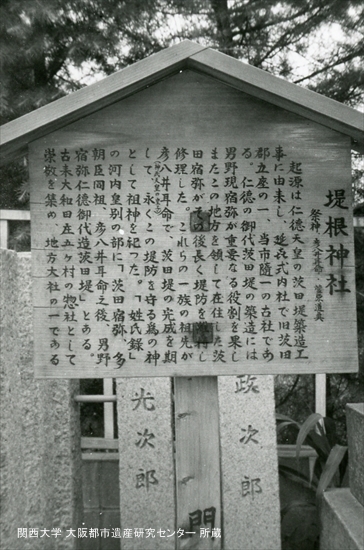 堤根神社
祭神 彦八井耳命 菅原道真
起源は仁徳天皇の茨田堤築造工
事に由来し、延喜式内社で旧茨田
郡五座の一、当市随一の古社であ
る。仁徳の御代茨田堤の築造には
男野現宿弥が重要なる役割を果し
またこの地方を領して在住した茨
田宿弥がその後長く堤防を維持し
修理した。これらの一族の祖先が
彦八井耳命で、茨田堤の完成を期
して、永くこの堤防を守る為の神
として祖神を祀った。「姓氏録」
の河内皇別の部に「茨田宿弥、多
朝臣同祖、彦八井耳命之後、男野
宿弥仁徳御代造茨田堤」とある。
古来大和田庄五ヶ村の惣社として
崇敬を集め、地方大社の一である
政次郎
光次郎
関西大学 大阪都市遺産研究センター 所蔵